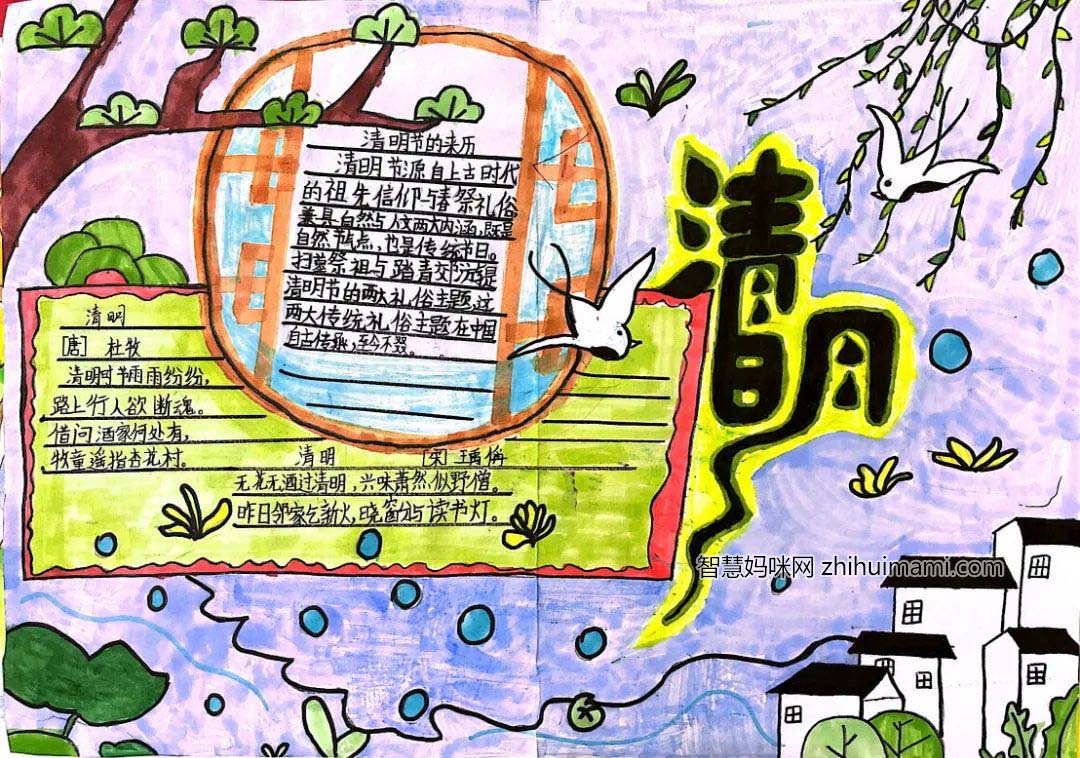 清明节的来历
清明节源自上古时代
的祖先信仰与春祭礼俗
兼具自然与人文两大内涵,既是
自然节点,也是传统节日。
扫墓祭祖与踏青郊游是
清明节的两大礼俗主题,这
两大传统礼俗主题在中国
自古传承,至今不辍。
清明
清明
[唐] 杜牧
清明时节雨雨纷纷,
路上行人欲断魂。
借问酒家何处有,
牧童遥指杏花村。
清明 [宋] 王禹偁
无花无酒过清明,兴味萧然似野僧。
昨日邻家乞新火,晓窗分与读书灯。
智慧妈咪网 zhihuimami.com